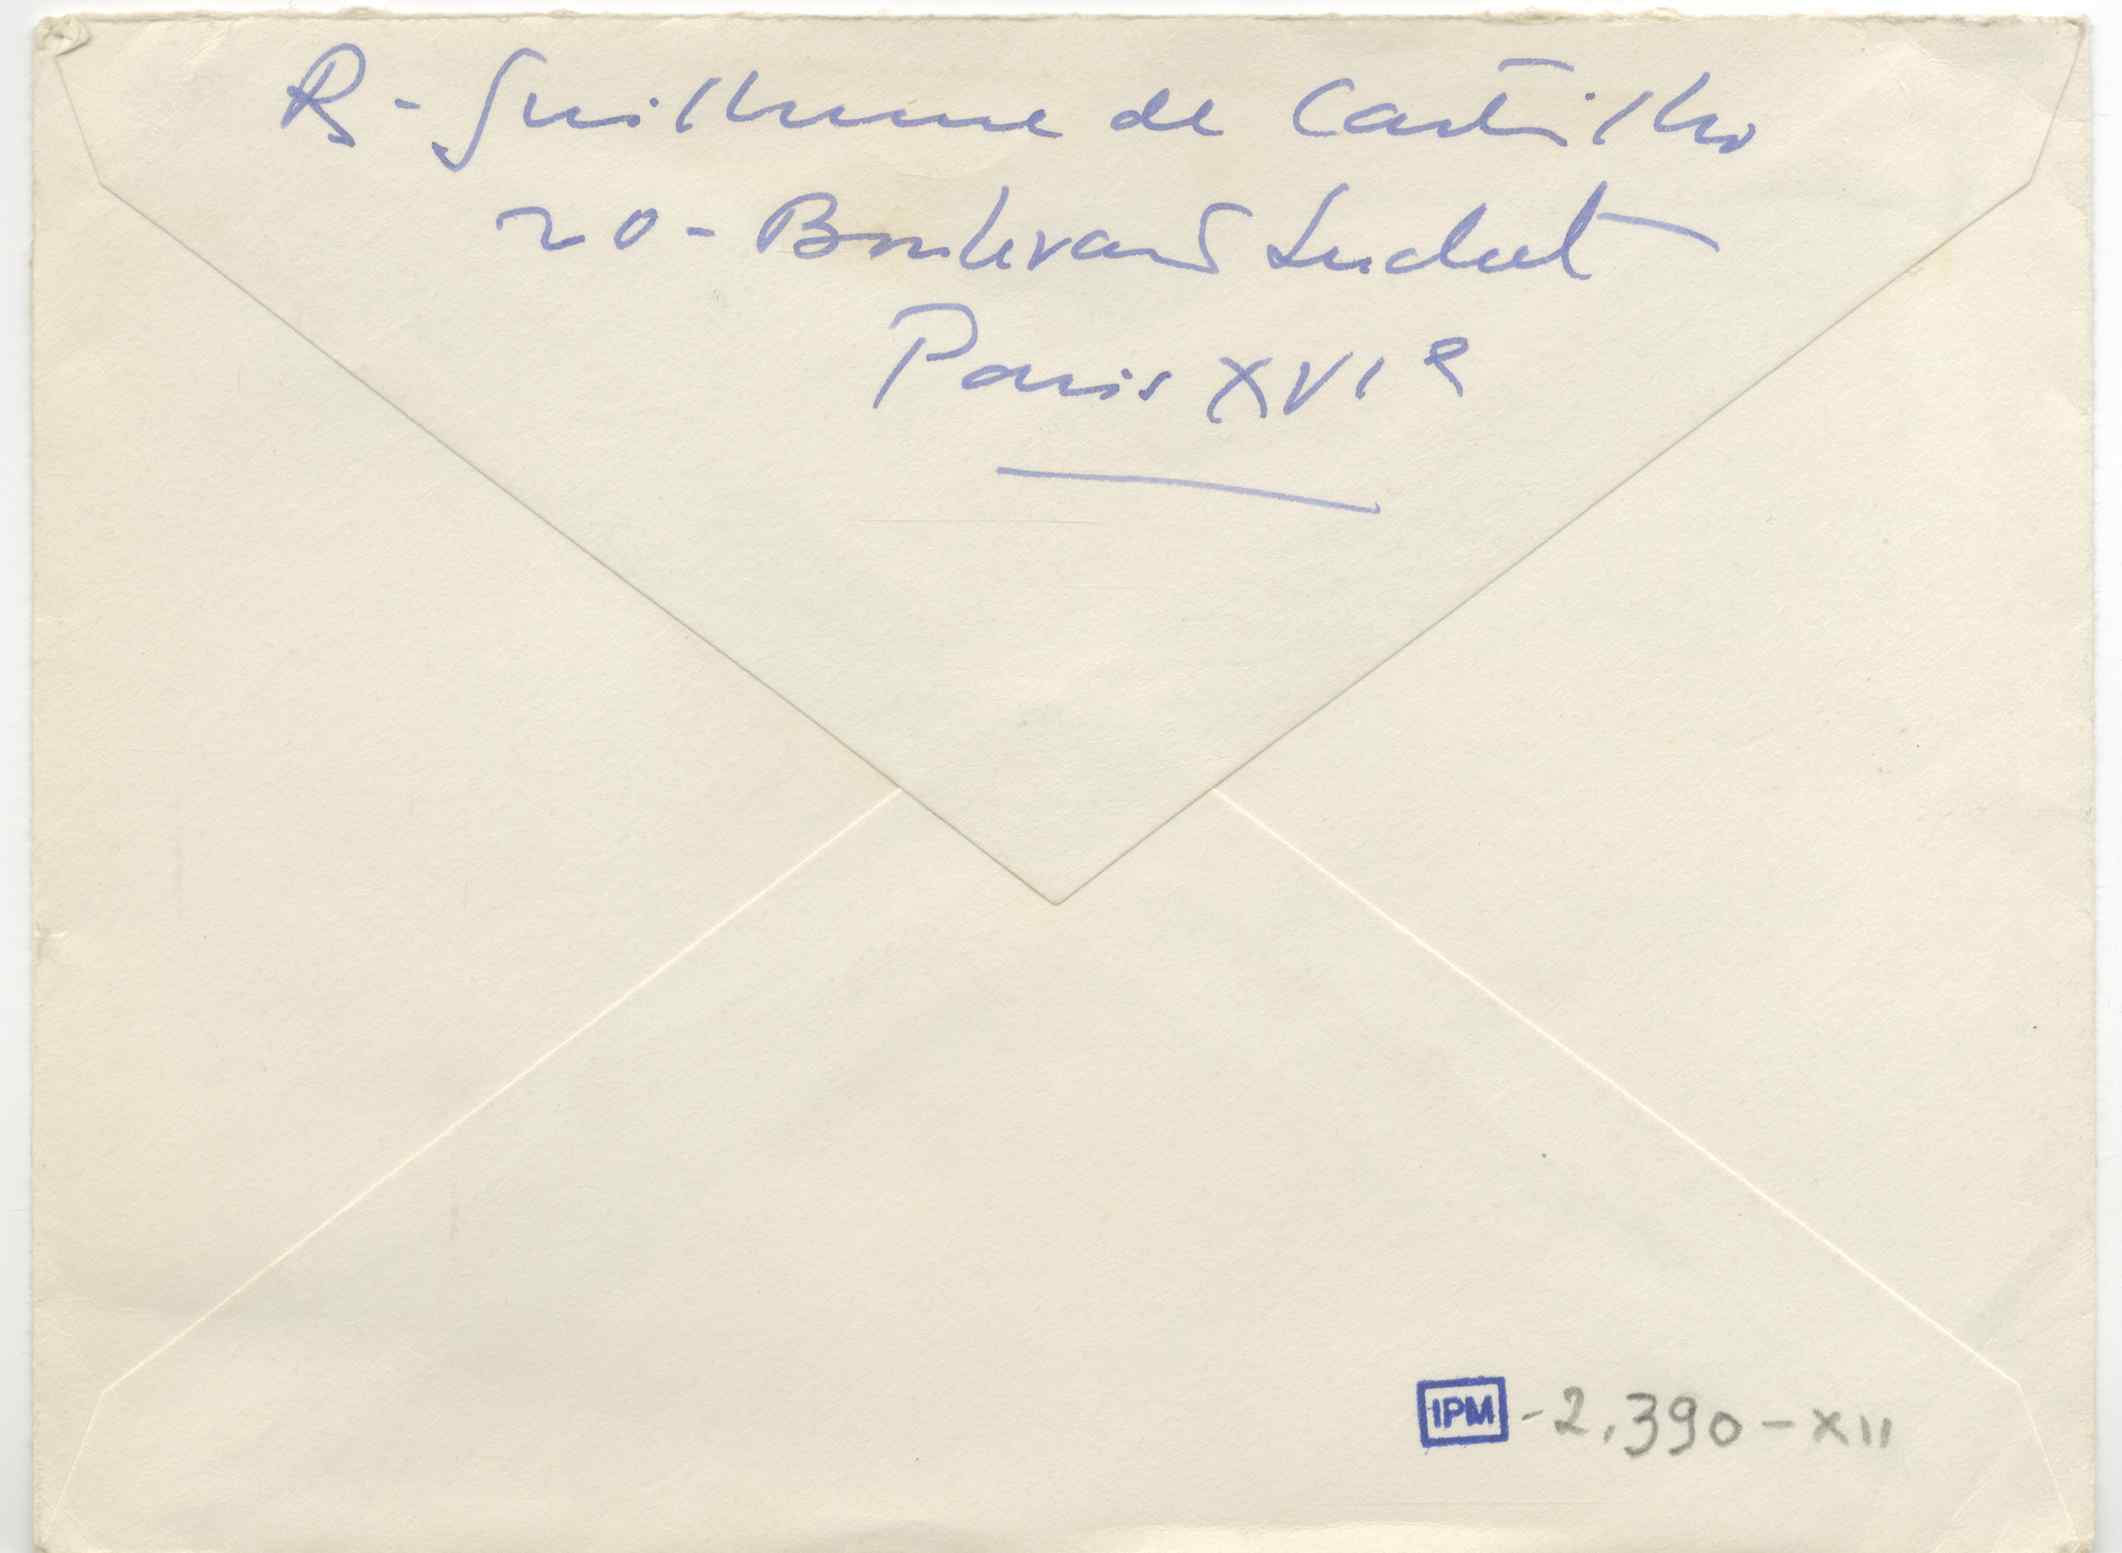 R - Guilherme de Castilho
20 - Boulevard Suchet
Paris XVIe
IPM - 2.390 - XII